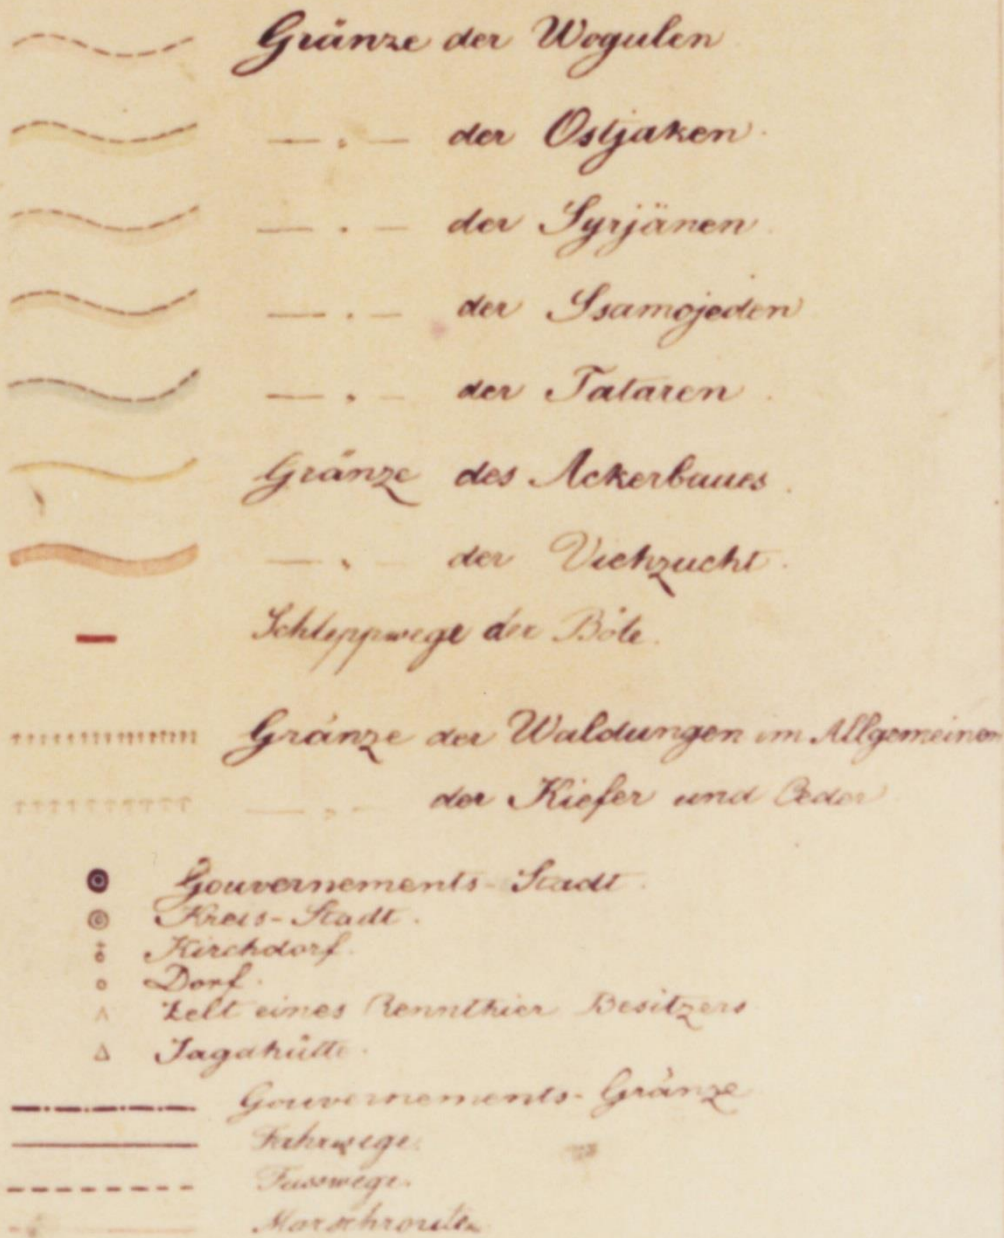 Gränze der Wogulen
— „ — der Ostjaken.
— „ — der Syrjänen.
— „ — der Ssamojeden
— „ — der Tataren.
Gränze des Ackerbaues.
— „ — der Viehzucht.
Schleppwege der Böte.
Gränze der Waldungen im Allgemeinen
— „ — der Kiefer und Ceder
Gouvernements-Stadt.
Kreis-Stadt.
Kirchdorf.
Dorf.
Zelt eines Rennthier Besitzers
Jagdhütte.
Gouvernements-Gränze
Fahrwege.
Fusswege.
Marschroute